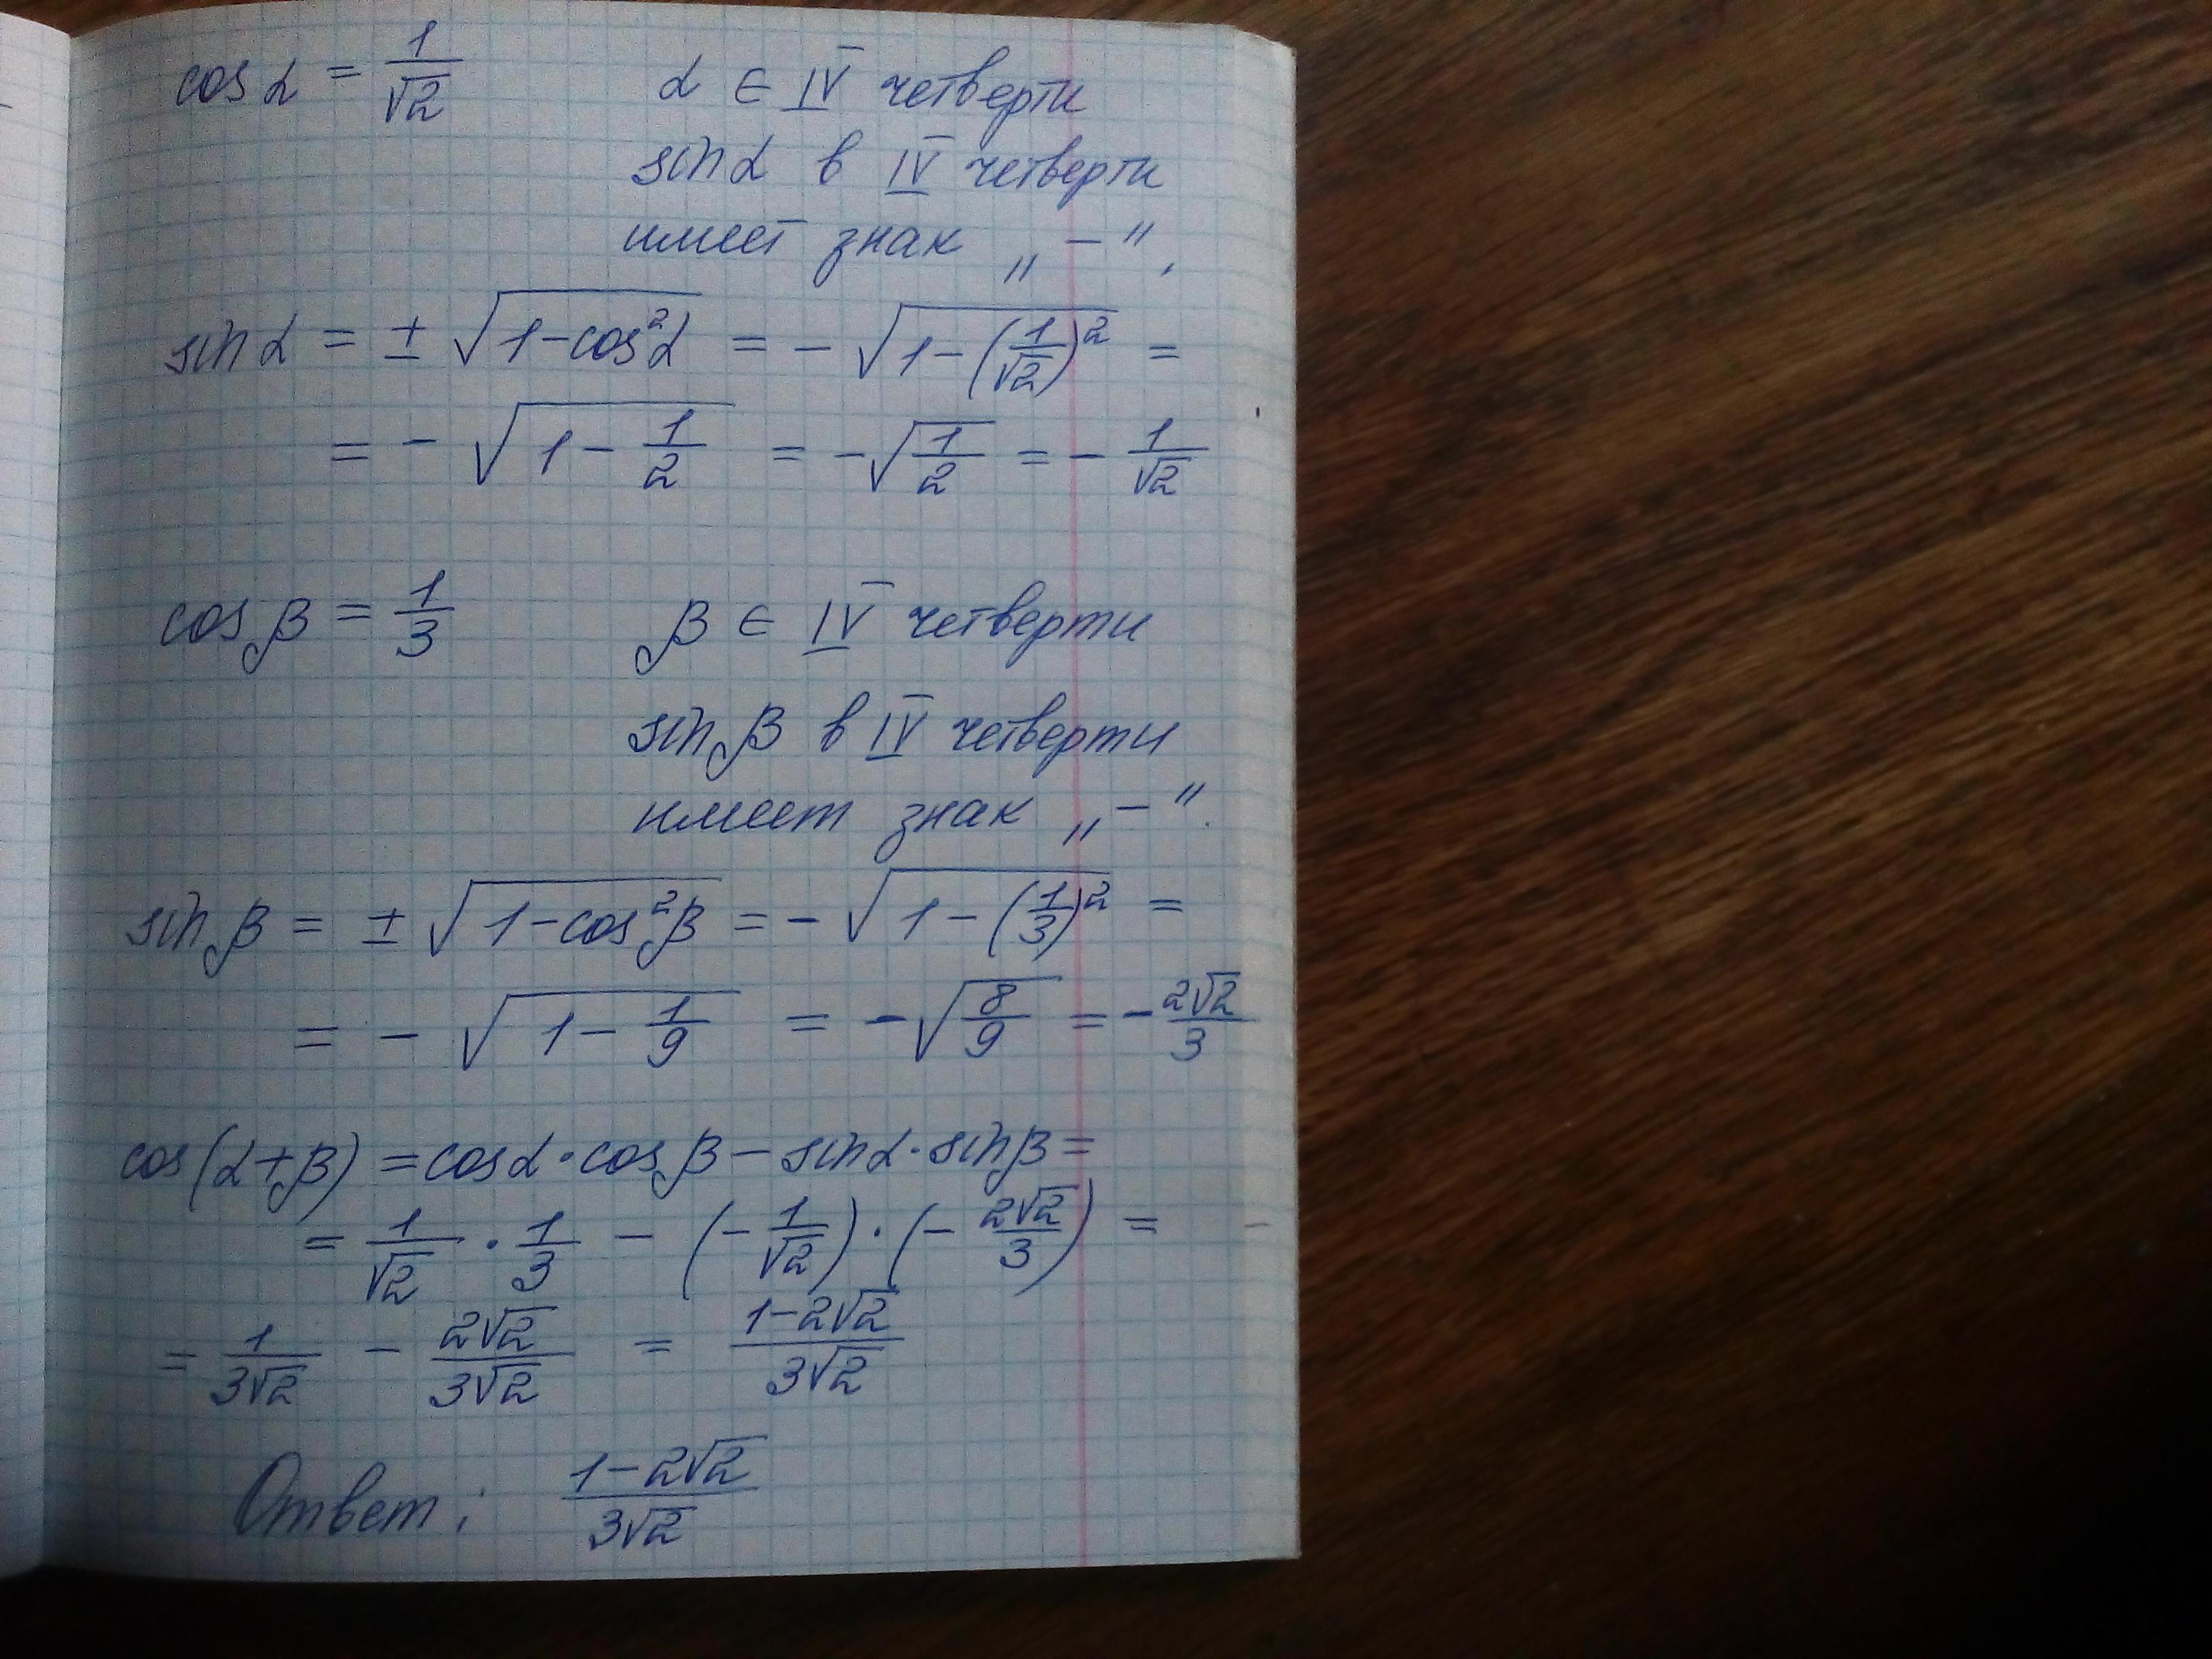 cos α = 1/√2 α ∈ IV четверти
sin α в IV четверти
имеет знак „ – “,
sin α = ± √(1-cos²α) = - √(1-(1/√2)²) =
= - √(1 - 1/2) = -√(1/2) = - 1/√2
cos β = 1/3 β ∈ IV четверти
sin β в IV четверти
имеет знак „ – “.
sin β = ± √(1-cos²β) = - √(1 - (1/3)²) =
= - √(1 - 1/9) = -√(8/9) = - 2√2/3
cos(α+β) = cos α · cos β - sin α · sin β =
= 1/√2 · 1/3 - (- 1/√2) · (- 2√2/3) =
= 1/(3√2) - 2√2/(3√2) = (1-2√2)/(3√2)
Ответ: (1-2√2)/(3√2)